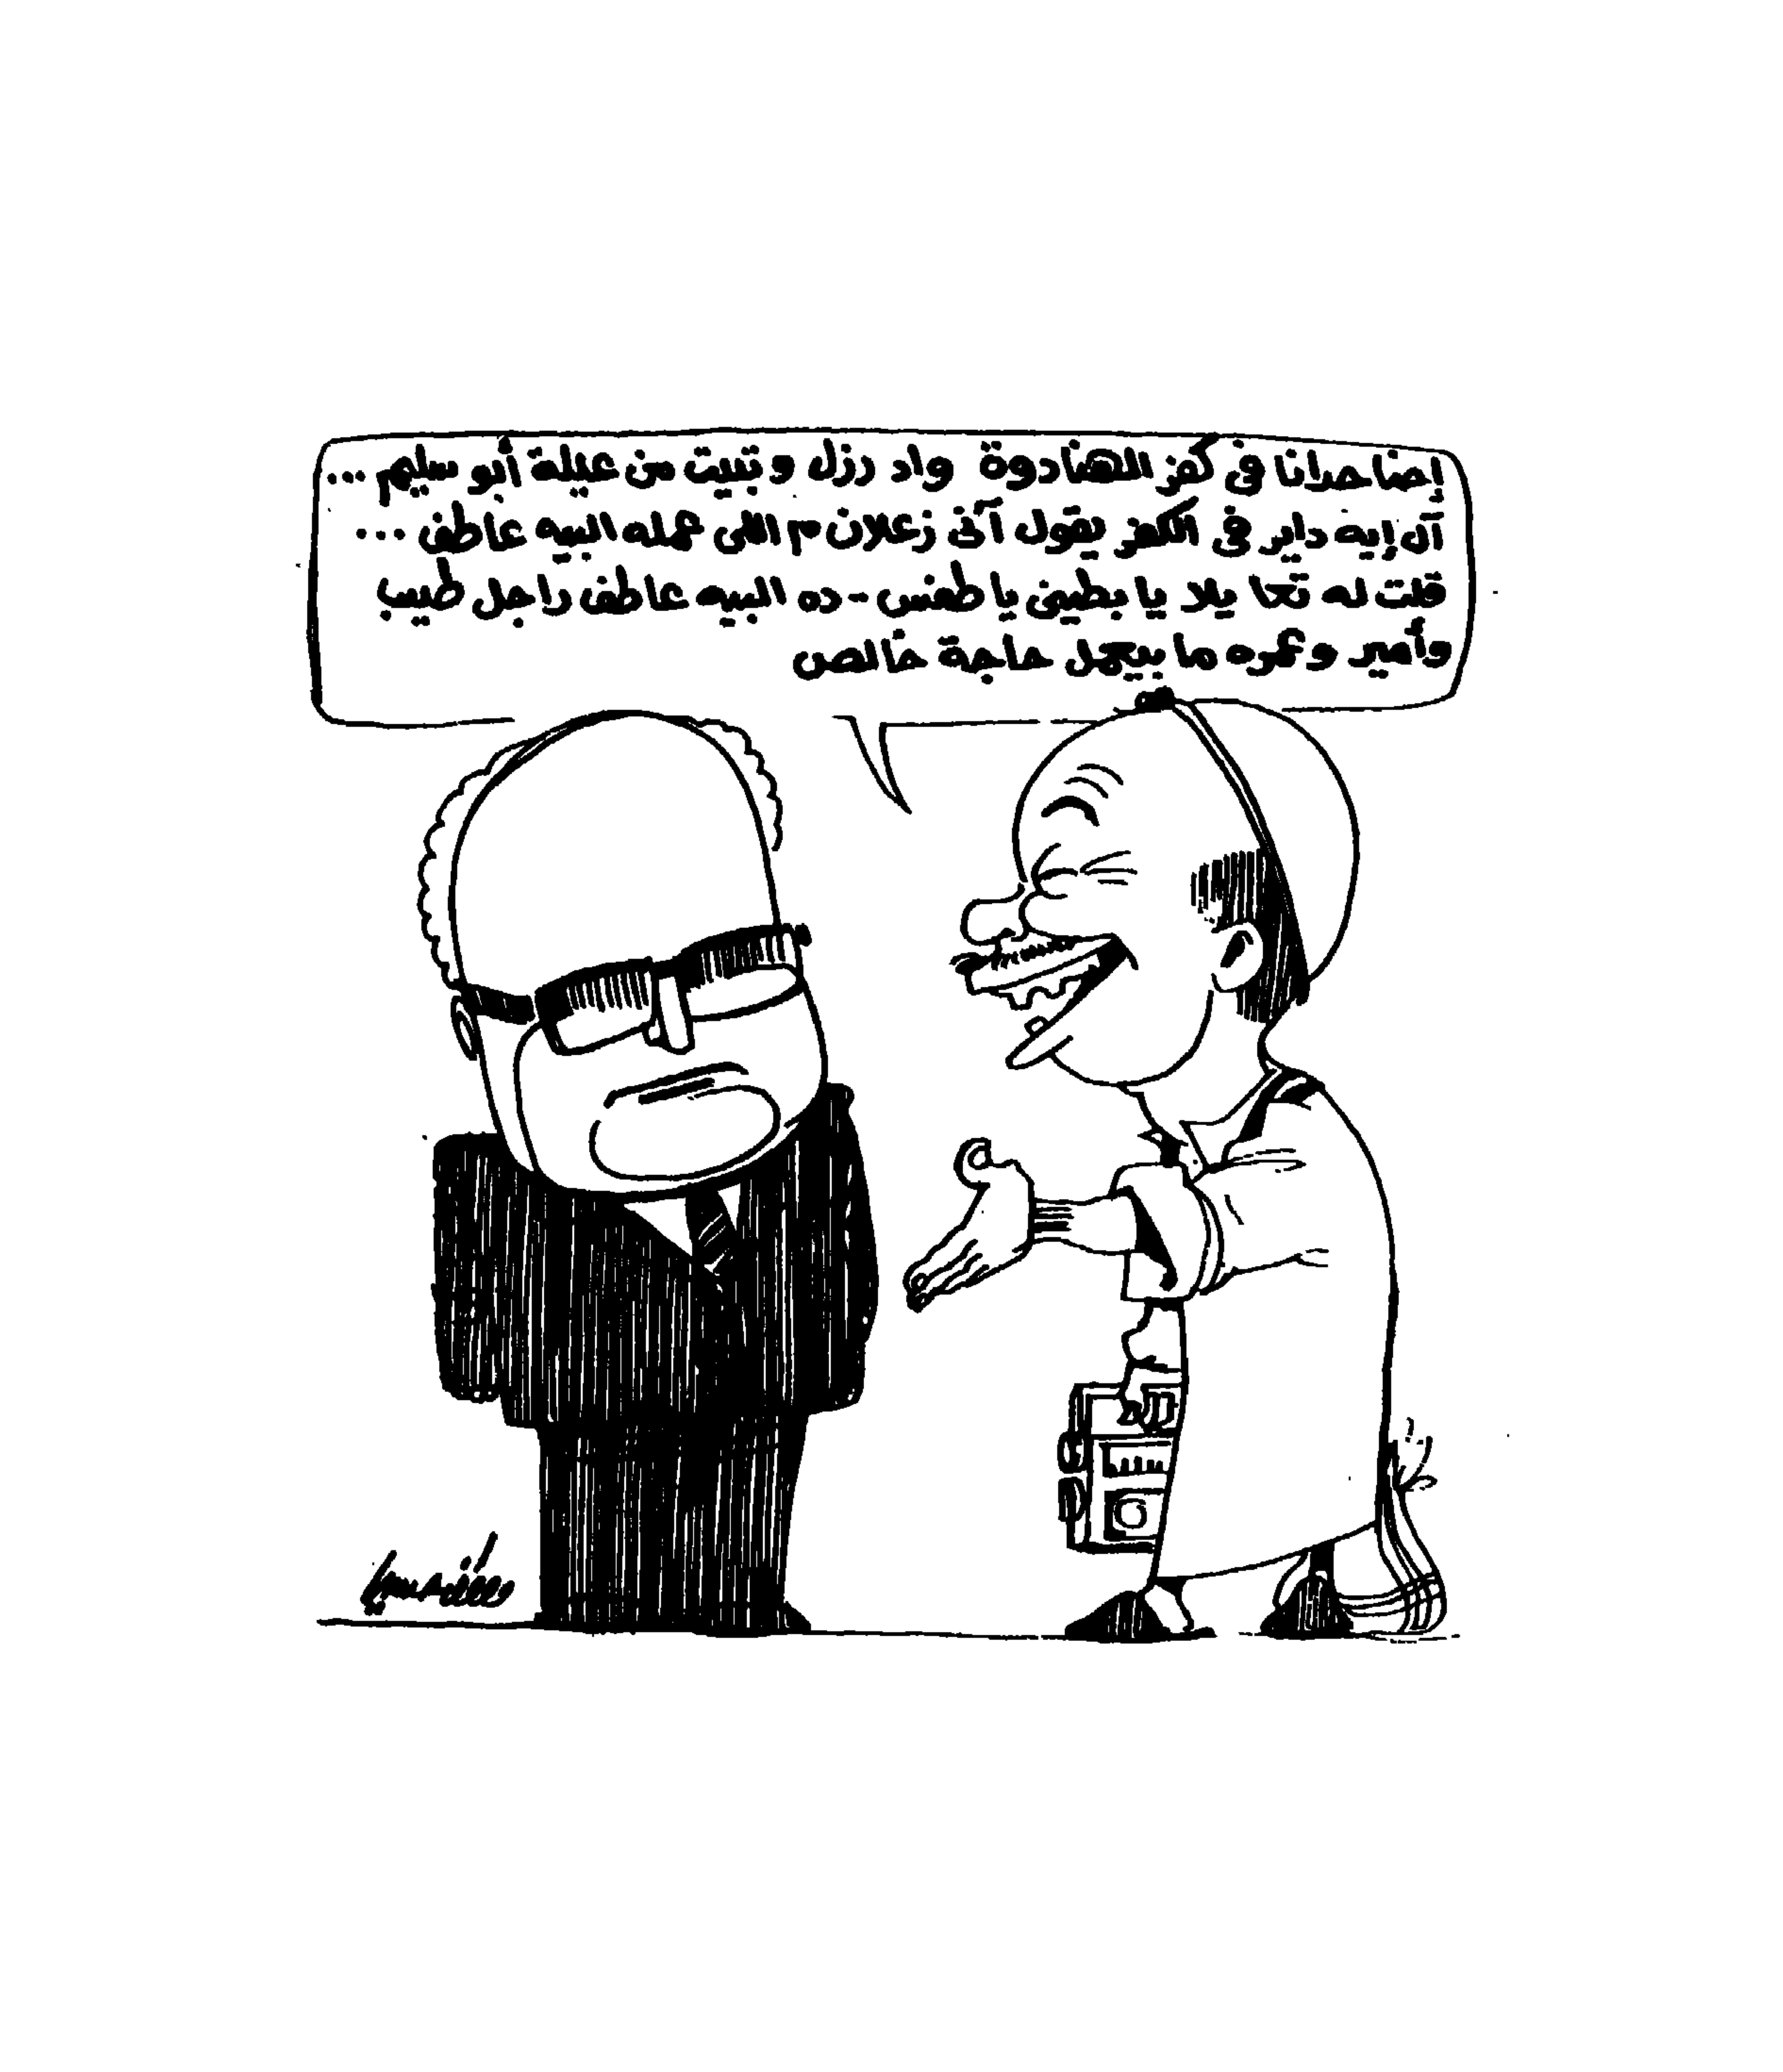 إحنا حدانا فى كفر الهنادوة واد رزل وتبيت من عيلة أبو سليم ...
آل إيه داير فى الكفر يقول آنى زعلان م اللى عمله البيه عاطف ...
قلت له تعا يلا يا بطينى يا طفس - ده البيه عاطف راجل طيب
وأمير وعمره ما بيعمل حاجة خالص